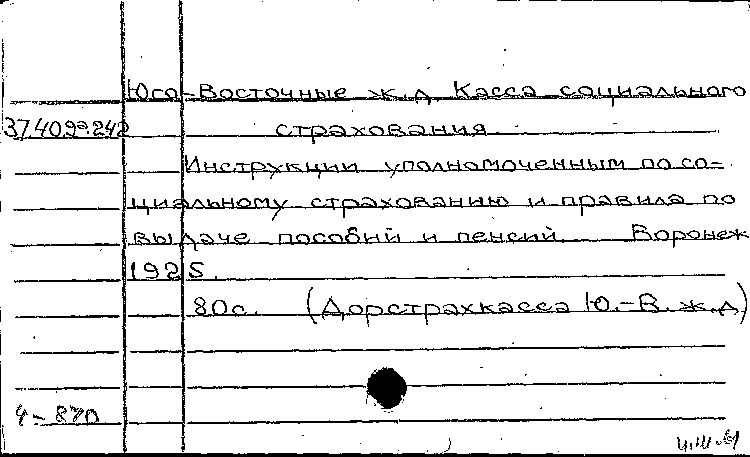 Юго-Восточные ж.д. Касса социального
37.40.99.242 страхования
Инструкции уполномоченным по со-
циальному страхованию и правила по
выдаче пособий и пенсий. Воронеж
1925.
80с. (Дорстрахкасса Ю.-В. ж.д)
4-870